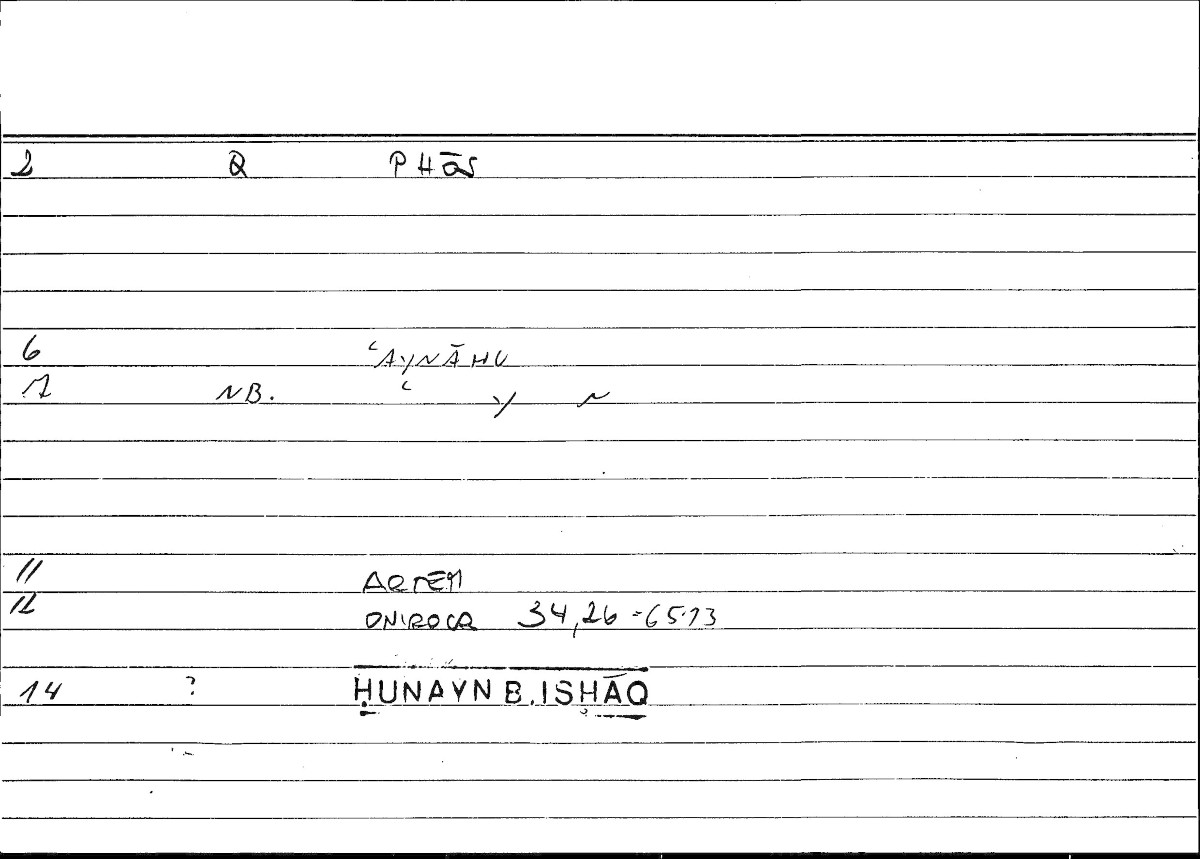 2 Q PHōS
6 ʿAYNĀHU
7 NB. ʿ y n
11 ARTEM
12 ONIROCR 34,26 = 65.13
14 ? ḤUNAYN B. ISḤĀQ